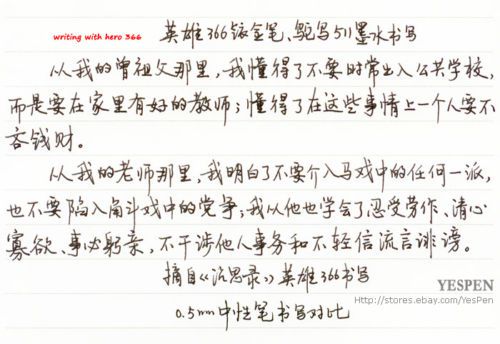 writing with hero 366
英雄366铱金笔、鸵鸟511墨水书写
从我的曾祖父那里，我懂得了不要时常出入公共学校，
而是要在家里有好的教师；懂得了在这些事情上一个人要不
吝钱财。
从我的老师那里，我明白了不要介入马戏中的任何一派，
也不要陷入角斗戏中的党争；我从他也学会了忍受劳作、清心
寡欲、事必躬亲，不干涉他人事务和不轻信流言诽谤。
摘自《沉思录》英雄366书写
YESPEN
Http://stores.ebay.com/YesPen
0.5mm中性笔书写对比